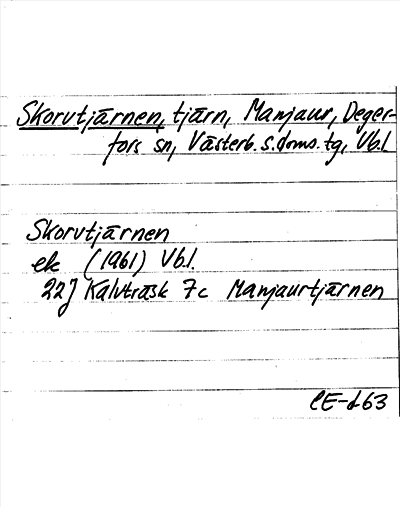 Skorvtjärnen, tjärn, Manjaur, Deger-
fors sn, Västerb. s. doms. tg, Vb.l
Skorvtjärnen
ek (1961) Vb.l.
22J Kalvträsk 7c Manjaurtjärnen
CE-d 63